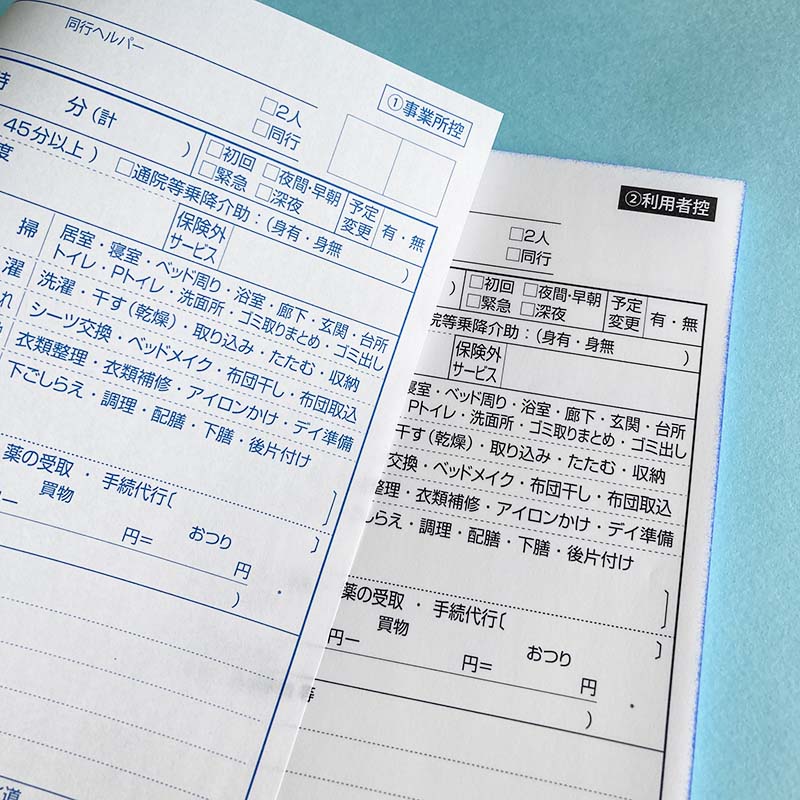 同行ヘルパー
①事業所控
時 分(計 ) □2人
□同行
45分以上) □初回 □夜間・早朝 予定変更 有・無
度 □緊急 □深夜
□通院等乗降介助:(身有・身無 )
保険外サービス
掃 居室・寝室・ベッド周り・浴室・廊下・玄関・台所
トイレ・Pトイレ・洗面所・ゴミ取りまとめ・ゴミ出し
濯 洗濯・干す(乾燥)・取り込み・たたむ・収納
れ シーツ交換・ベッドメイク・布団干し・布団取込
衣類整理・衣類補修・アイロンかけ・デイ準備
下ごしらえ・調理・配膳・下膳・後片付け
薬の受取・手続代行〔 〕
買物 おつり 〕
円= 円
)
道
②利用者控
□2人
□同行
) □初回 □夜間・早朝 予定変更 有・無
□緊急 □深夜
院等乗降介助:(身有・身無 )
保険外サービス
寝室・ベッド周り・浴室・廊下・玄関・台所
Pトイレ・洗面所・ゴミ取りまとめ・ゴミ出し
干す(乾燥)・取り込み・たたむ・収納
交換・ベッドメイク・布団干し・布団取込
整理・衣類補修・アイロンかけ・デイ準備
しらえ・調理・配膳・下膳・後片付け
薬の受取・手続代行〔 〕
買物 おつり 〕
円− 円= 円
)
等